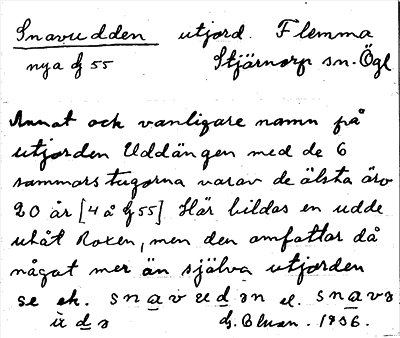 Snavudden utjord. Flemma
nya § 55 Stjärnorp sn. Ögl
Annat och vanligare namn på
utjorden Uddängen med de 6
sommarstugorna varav de älsta äro
20 år [4 å § 55] Här bildas en udde
utåt Roxen, men den omfattar då
något mer än själva utjorden
se ek. snavudən el. snavə
udə 1936.